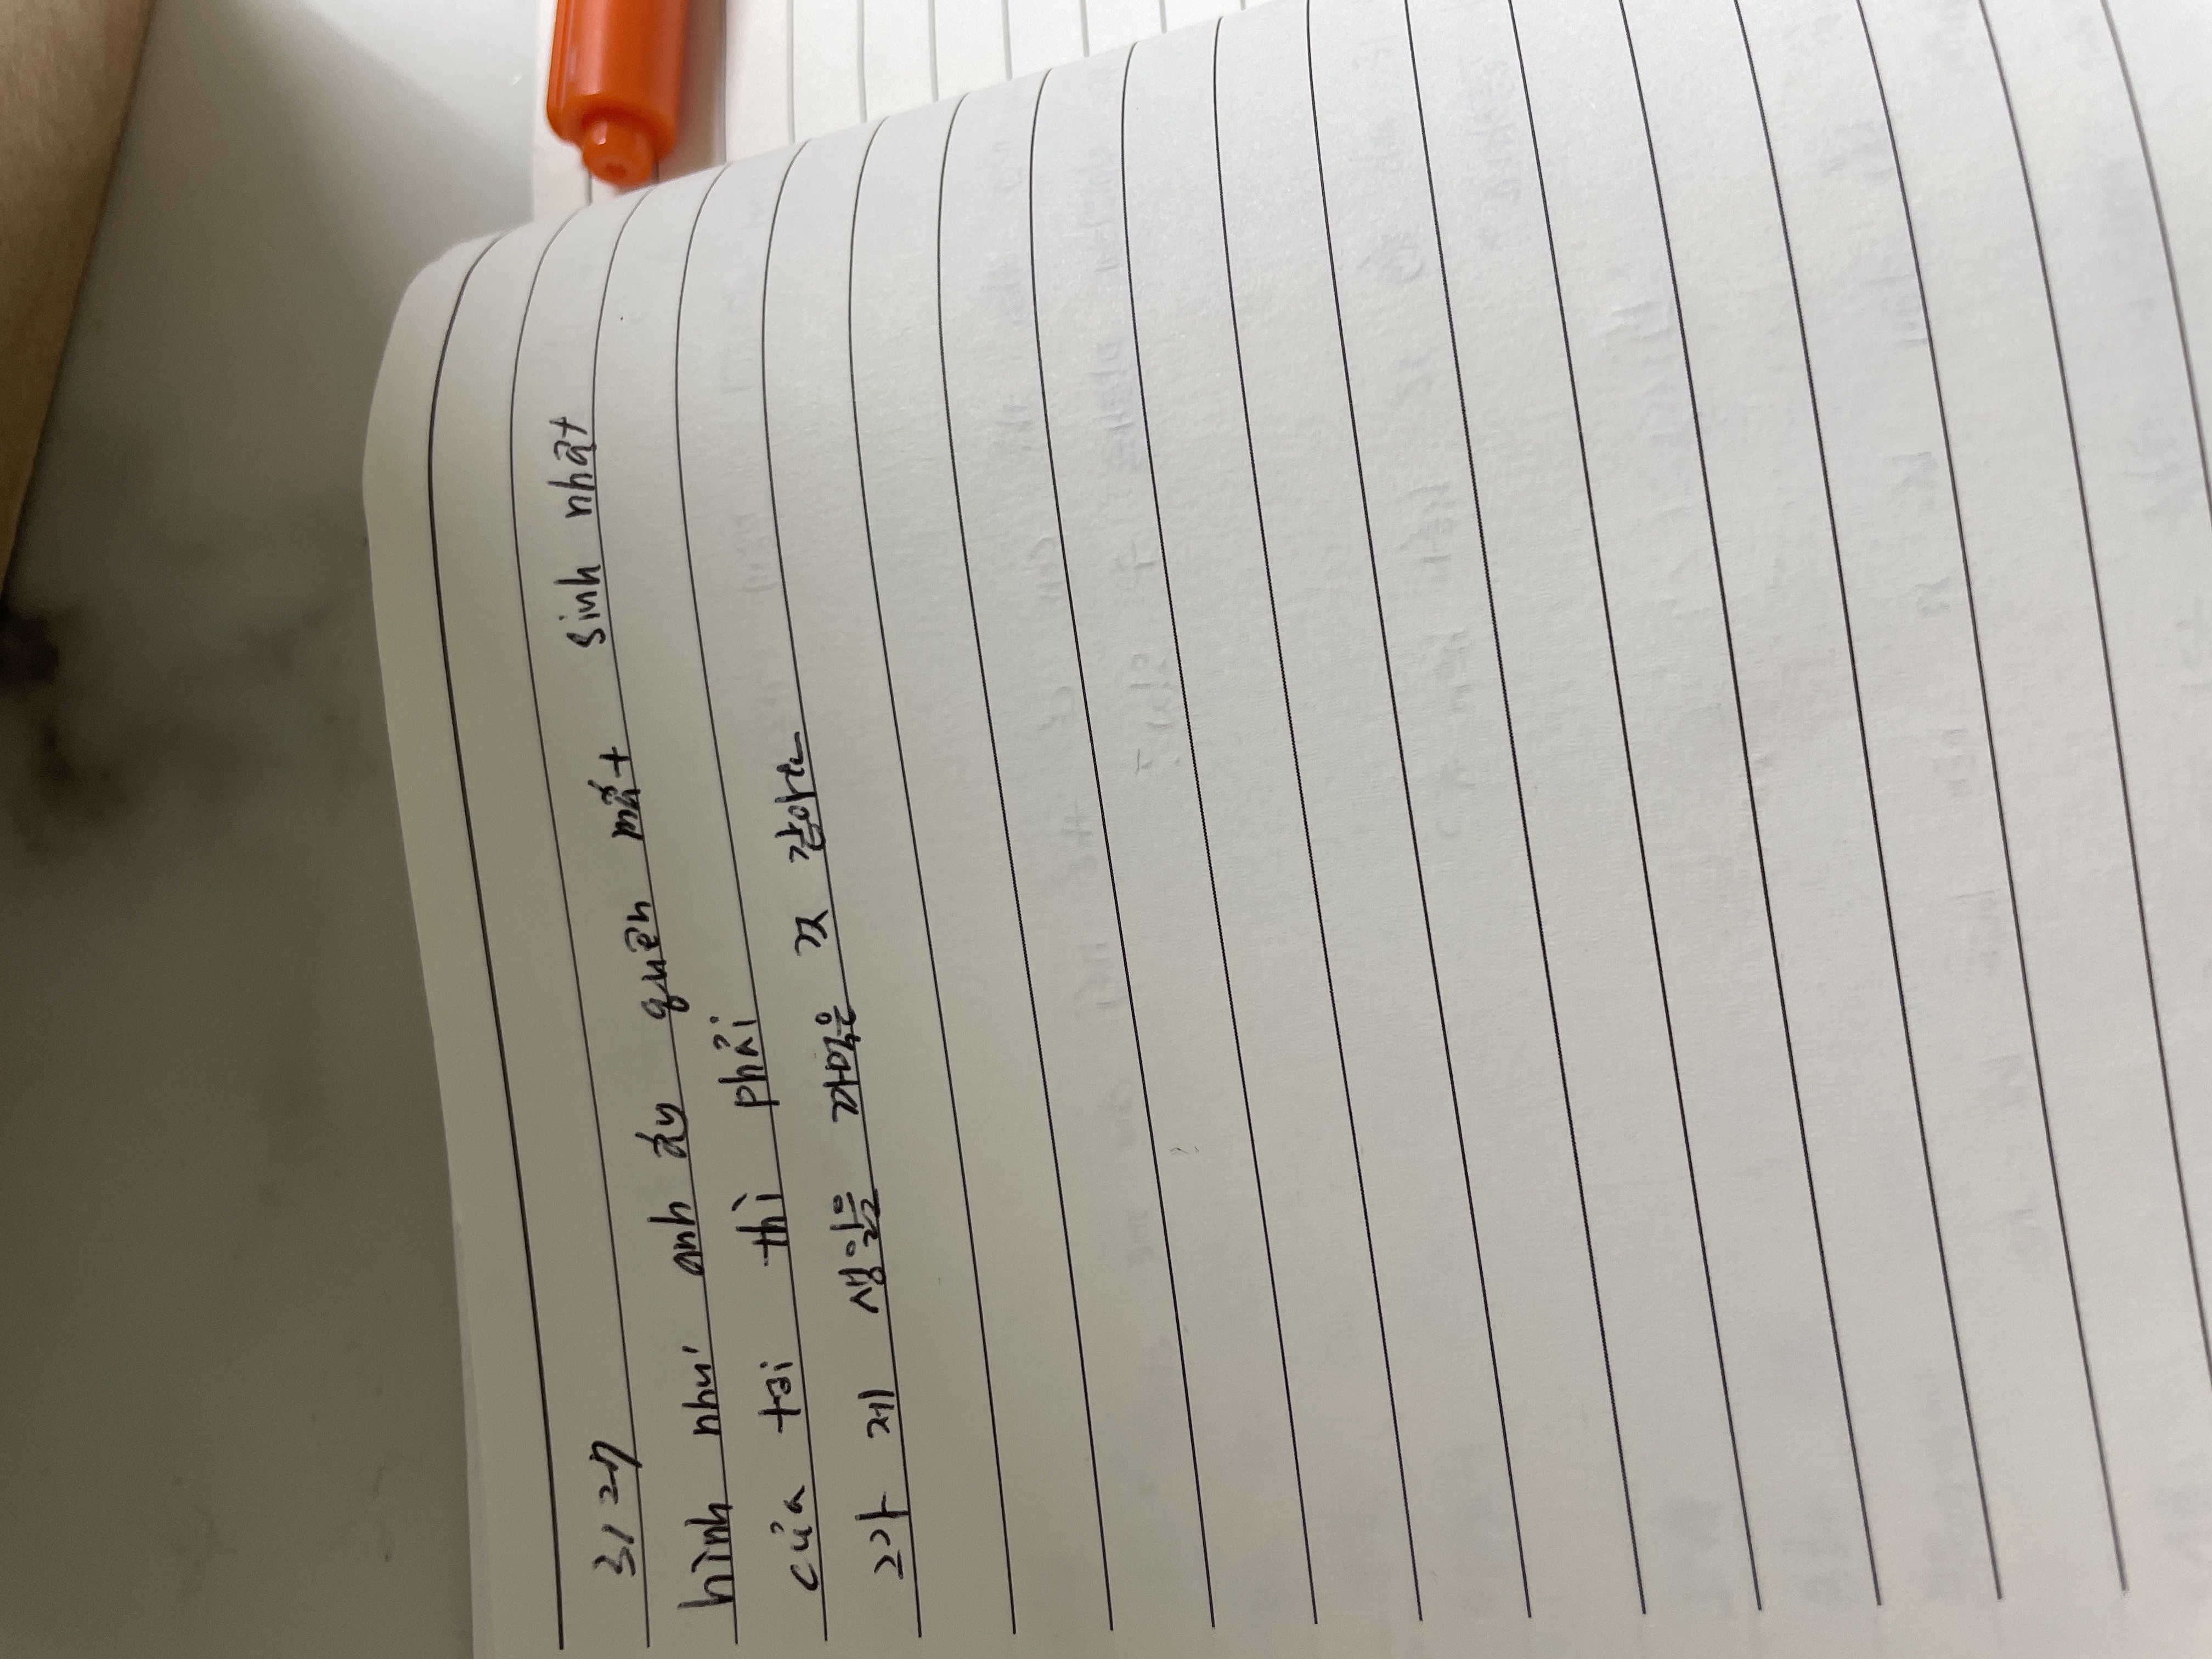 3/27
hình như anh ấy quên mất sinh nhật
của tôi thì phải
그가 제 생일을 까먹은 것 같아요